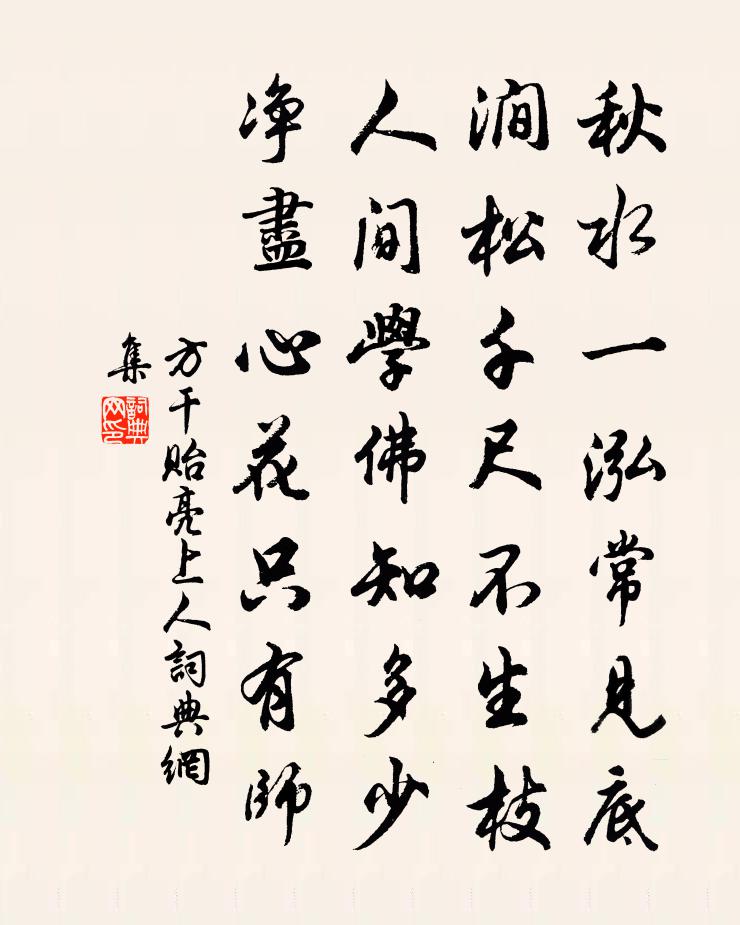 秋水一泓常見底
澗松千尺不生枝
人間學佛知多少
净盡心花只有師
方干貽亮上人詞典網
集
詞典
网印